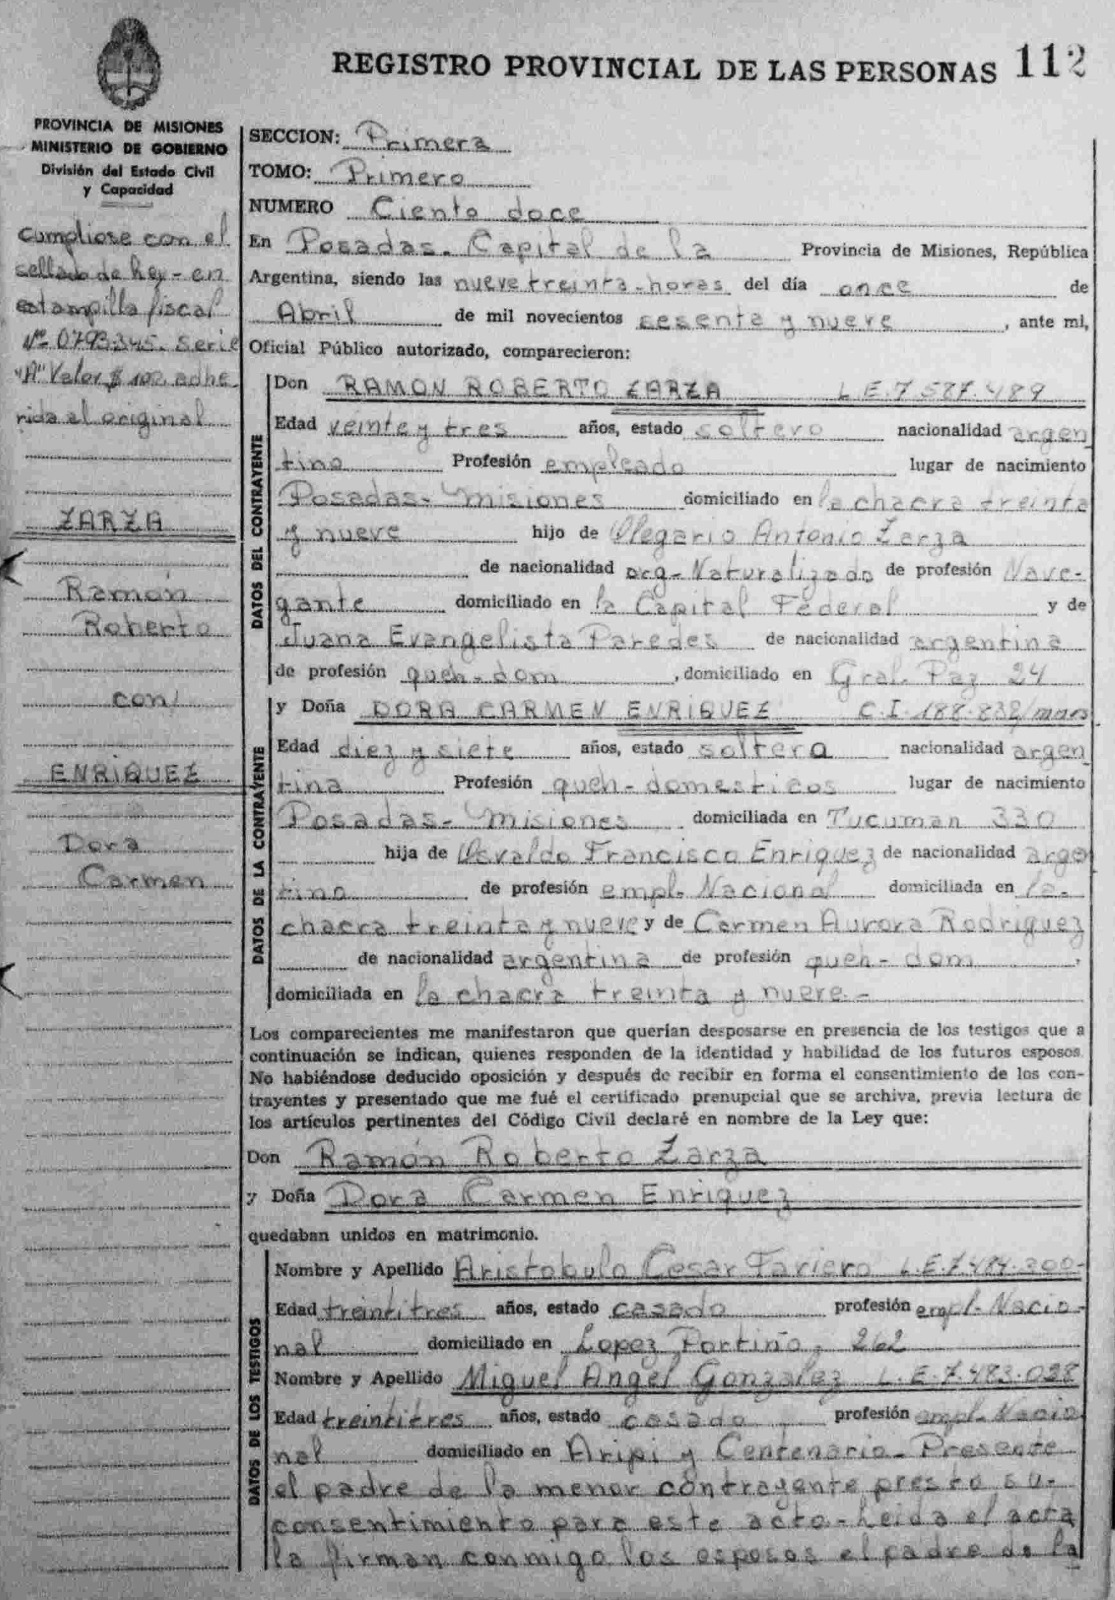 REGISTRO PROVINCIAL DE LAS PERSONAS 112
PROVINCIA DE MISIONES
MINISTERIO DE GOBIERNO
División del Estado Civil
y Capacidad
cumpliose con el
sellado de hoy - en
estampilla fiscal
Nº 0793345. serie
"A" Valor $ 100. adhe
rida al original
ZARZA
Ramón
Roberto
con/
ENRIQUEZ
Dora
Carmen
SECCION: Primera
TOMO: Primero
NUMERO Ciento doce
En Posadas. Capital de la Provincia de Misiones, República
Argentina, siendo las nueve treinta-horas del día once de
Abril de mil novecientos sesenta y nueve, ante mi,
Oficial Público autorizado, comparecieron:
DATOS DEL CONTRAYENTE
Don RAMON ROBERTO ZARZA L.E.7.587.489
Edad veinte y tres años, estado soltero nacionalidad argen
tino Profesión empleado lugar de nacimiento
Posadas-Misiones domiciliado en la chacra treinta
y nueve hijo de Olegario Antonio Zarza
de nacionalidad arg-Naturalizado de profesión Nave-
gante domiciliado en la Capital Federal y de
Juana Evangelista Paredes de nacionalidad argentina
de profesión queh-dom, domiciliado en Gral. Paz 24
DATOS DE LA CONTRAYENTE
y Doña DORA CARMEN ENRIQUEZ C.I.188.832/mnes
Edad diez y siete años, estado soltera nacionalidad argen
tina Profesión queh-domesticos lugar de nacimiento
Posadas-Misiones domiciliada en Tucuman 330
hija de Osvaldo Francisco Enriquez de nacionalidad arge
tino de profesión empl-Nacional domiciliada en la-
chacra treinta y nueve y de Carmen Aurora Rodriguez
de nacionalidad argentina de profesión queh-dom,
domiciliada en la chacra treinta y nueve.-
Los comparecientes me manifestaron que querían desposarse en presencia de los testigos que a
continuación se indican, quienes responden de la identidad y habilidad de los futuros esposos
No habiéndose deducido oposición y después de recibir en forma el consentimiento de los con-
trayentes y presentado que me fué el certificado prenupcial que se archiva, previa lectura de
los artículos pertinentes del Código Civil declaré en nombre de la Ley que:
Don Ramón Roberto Zarza
y Doña Dora Carmen Enriquez
quedaban unidos en matrimonio.
DATOS DE LOS TESTIGOS
Nombre y Apellido Aristobulo Cesar Fariero L.E.7.484.300-
Edad treintitres años, estado casado profesión empl-Nacio-
nal domiciliado en Lopez Portiño, 262
Nombre y Apellido Miguel Angel Gonzalez L.E.7.483.028
Edad treintitres años, estado casado profesión empl-Nacio
nal domiciliado en Aripi y Centenario-Presente
el padre de la menor contrayente presto su-
consentimiento para este acto-Leida el acta
la firman conmigo los esposos el padre de la